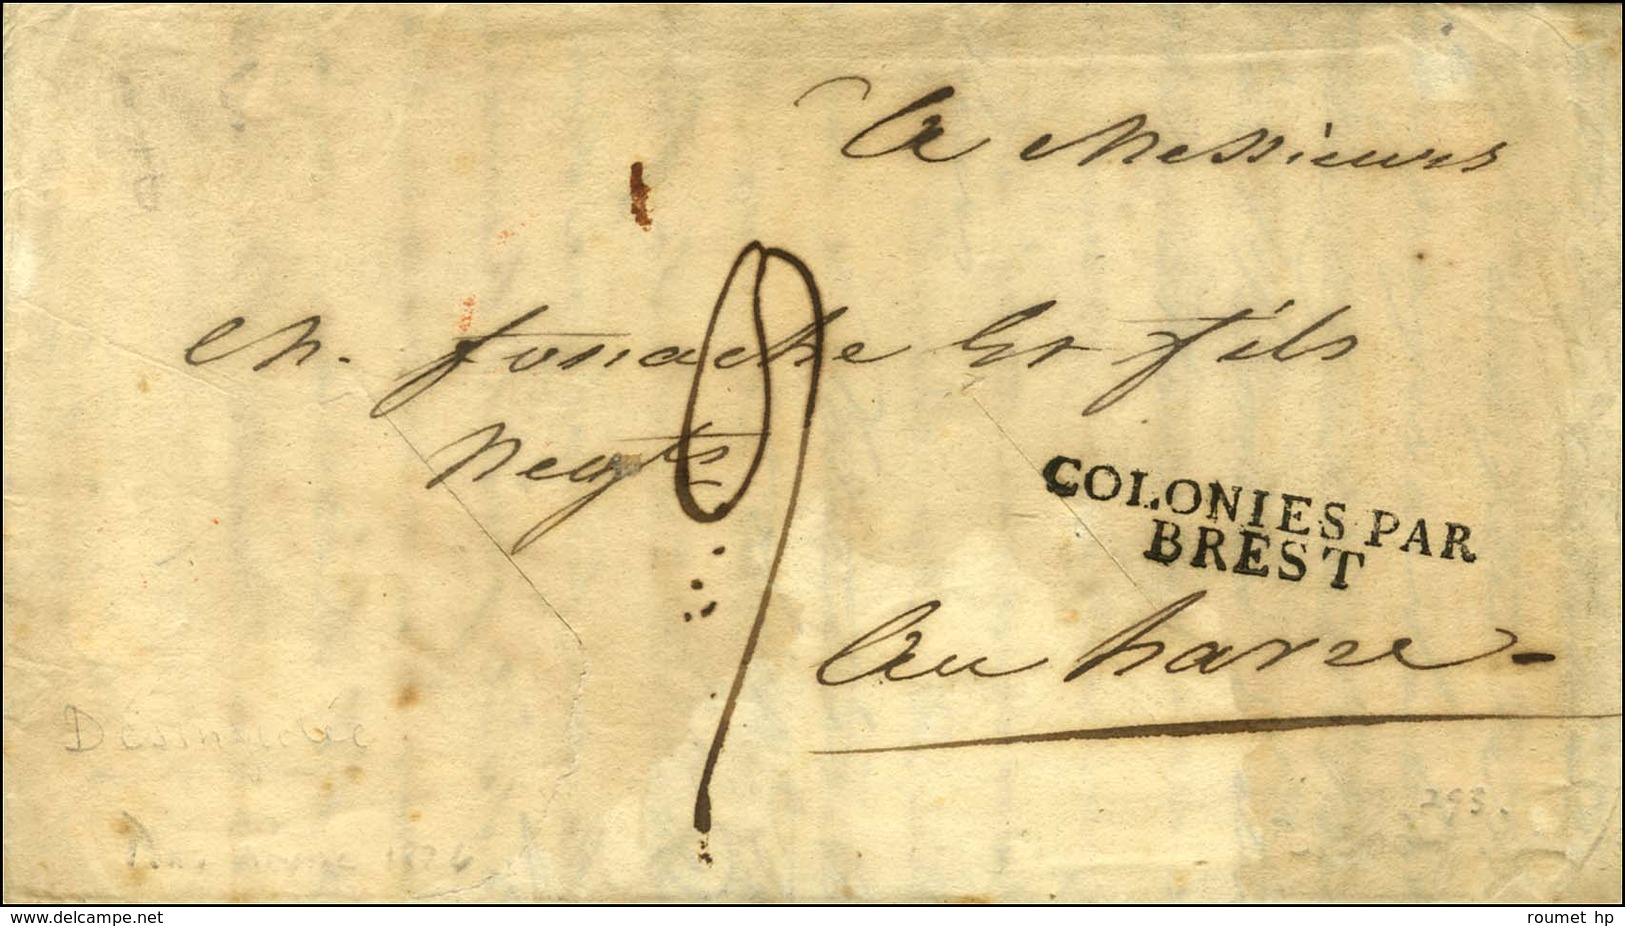 a Messieurs
m. fouache et fils
Negts
COLONIES PAR
BREST
au havre
9
293.
www.delcampe.net
roumet hp